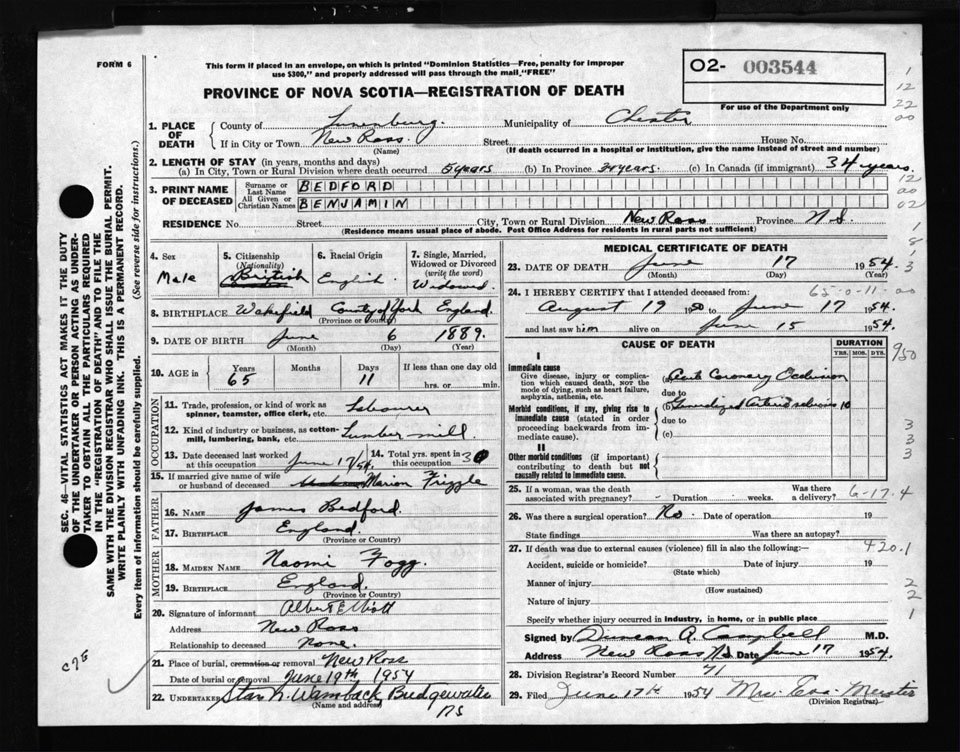 FORM 6
This form if placed in an envelope, on which is printed "Dominion Statistics—Free, penalty for improper
use $300," and properly addressed will pass through the mail "FREE"
PROVINCE OF NOVA SCOTIA—REGISTRATION OF DEATH
O2- 003544
For use of the Department only
1
12
22
00
1. PLACE OF DEATH
County of Lunenburg. Municipality of Chester
If in City or Town New Ross. Street House No.
(Name) (If death occurred in a hospital or institution, give the name instead of street and number)
2. LENGTH OF STAY (in years, months and days)
(a) In City, Town or Rural Division where death occurred 5 years (b) In Province 34 years. (c) In Canada (if immigrant) 34 years.
12
00
02
3. PRINT NAME OF DECEASED
Surname or Last Name BEDFORD
All Given or Christian Names BENJAMIN
RESIDENCE No. Street City, Town or Rural Division New Ross Province N.S.
(Residence means usual place of abode. Post Office Address for residents in rural parts not sufficient)
1
8
3
4. Sex Male
5. Citizenship (Nationality) British
6. Racial Origin English
7. Single, Married, Widowed or Divorced (write the word) Widowed
8. BIRTHPLACE Wakefield County of York England
(Province or Country)
9. DATE OF BIRTH June 6 1889.
(Month) (Day) (Year)
10. AGE in Years Months Days If less than one day old
65 11 hrs. or min.
OCCUPATION
11. Trade, profession, or kind of work as spinner, teamster, office clerk, etc. Labourer
12. Kind of industry or business, as cotton-mill, lumbering, bank, etc. Lumber mill.
13. Date deceased last worked at this occupation June 17/54.
14. Total yrs. spent in this occupation 30
15. If married give name of wife or husband of deceased Marion Frizzle
FATHER
16. NAME James Bedford.
17. BIRTHPLACE England
(Province or Country)
MOTHER
18. MAIDEN NAME Naomi Fogg.
19. BIRTHPLACE England.
(Province or Country)
20. Signature of informant Albert Elliott
Address New Ross
Relationship to deceased None.
21. Place of burial, cremation or removal New Ross
Date of burial or removal June 19th, 1954
22. UNDERTAKER Stan N. Wamback Bridgewater
(Name and address)
NS
MEDICAL CERTIFICATE OF DEATH
23. DATE OF DEATH June 17 1954.
(Month) (Day) (Year)
65-0-11-00
24. I HEREBY CERTIFY that I attended deceased from:
August 19 1950 to June 17 1954.
and last saw him alive on June 15 1954.
CAUSE OF DEATH
DURATION
YRS. MOS. DYS.
950
I
Immediate cause
Give disease, injury or complication which caused death, NOT the mode of dying, such as heart failure, asphyxia, asthenia, etc.
(a) Acute Coronary Occlusion
due to
Morbid conditions, if any, giving rise to immediate cause (stated in order proceeding backwards from immediate cause).
(b) Generalized Arteriosclerosis 10
due to
(c)
II
Other morbid conditions (if important) contributing to death but not causally related to immediate cause.
3
3
3
25. If a woman, was the death associated with pregnancy? - Duration weeks. Was there a delivery?
6-17.4
26. Was there a surgical operation? No. Date of operation 19
State findings Was there an autopsy?
27. If death was due to external causes (violence) fill in also the following:—
420.1
Accident, suicide or homicide? Date of injury 19
(State which)
Manner of injury
(How sustained)
Nature of injury
2
2
1
Specify whether injury occurred in industry, in home, or in public place
Signed by Duncan A. Campbell M.D.
Address New Ross NS Date June 17 1954.
28. Division Registrar's Record Number 71
29. Filed June 17th 1954 Mrs. Eva Meister
(Division Registrar)
SEC. 46—VITAL STATISTICS ACT MAKES IT THE DUTY
OF THE UNDERTAKER OR PERSON ACTING AS UNDER-
TAKER TO OBTAIN ALL THE PARTICULARS REQUIRED
IN THE "REGISTRATION OF DEATH" AND TO FILE THE
SAME WITH THE DIVISION REGISTRAR WHO SHALL ISSUE THE BURIAL PERMIT.
WRITE PLAINLY WITH UNFADING INK. THIS IS A PERMANENT RECORD.
Every item of information should be carefully supplied. (See reverse side for instructions.)